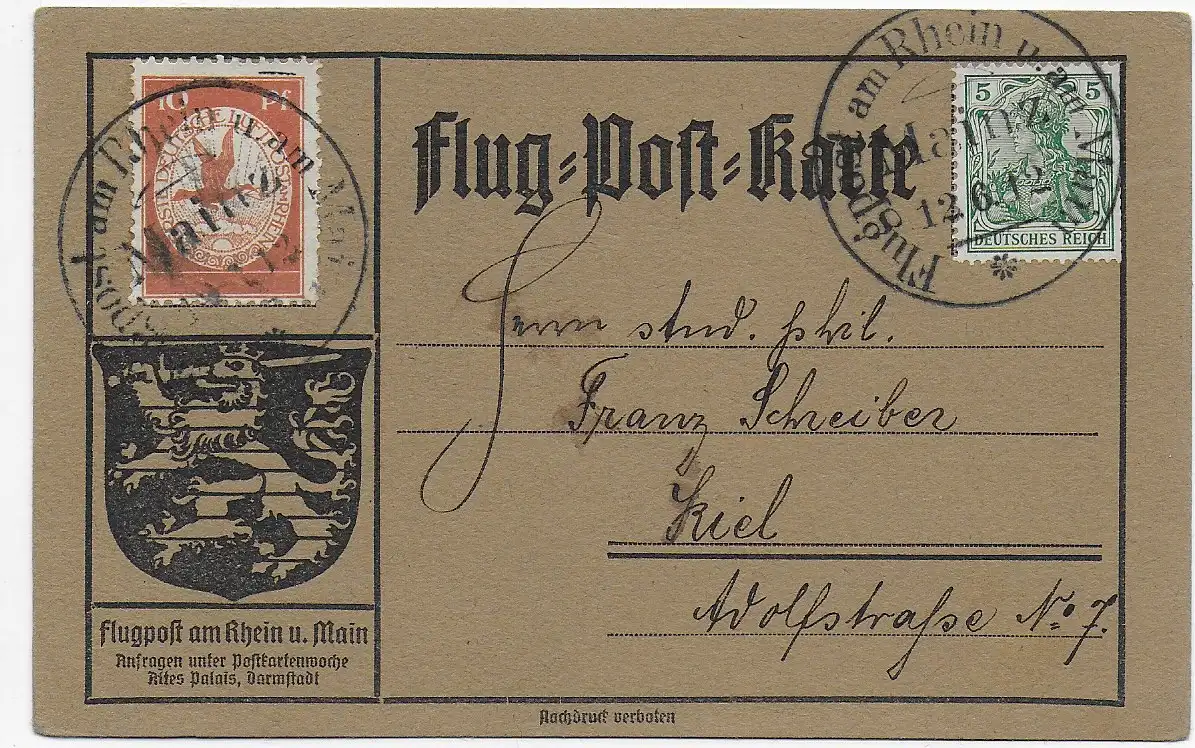 10 Pf
Flugpost am Rhein u. am Main
Mainz
Flug=Post=Karte
Flugpost am Rhein u. am Main
Mainz
12.6.12
5 5
DEUTSCHES REICH
Herrn stud. phil.
Franz Schreiber
Kiel
Adolfstraße No 7.
Flugpost am Rhein u. Main
Anfragen unter Postkartenwoche
Altes Palais, Darmstadt
Nachdruck verboten